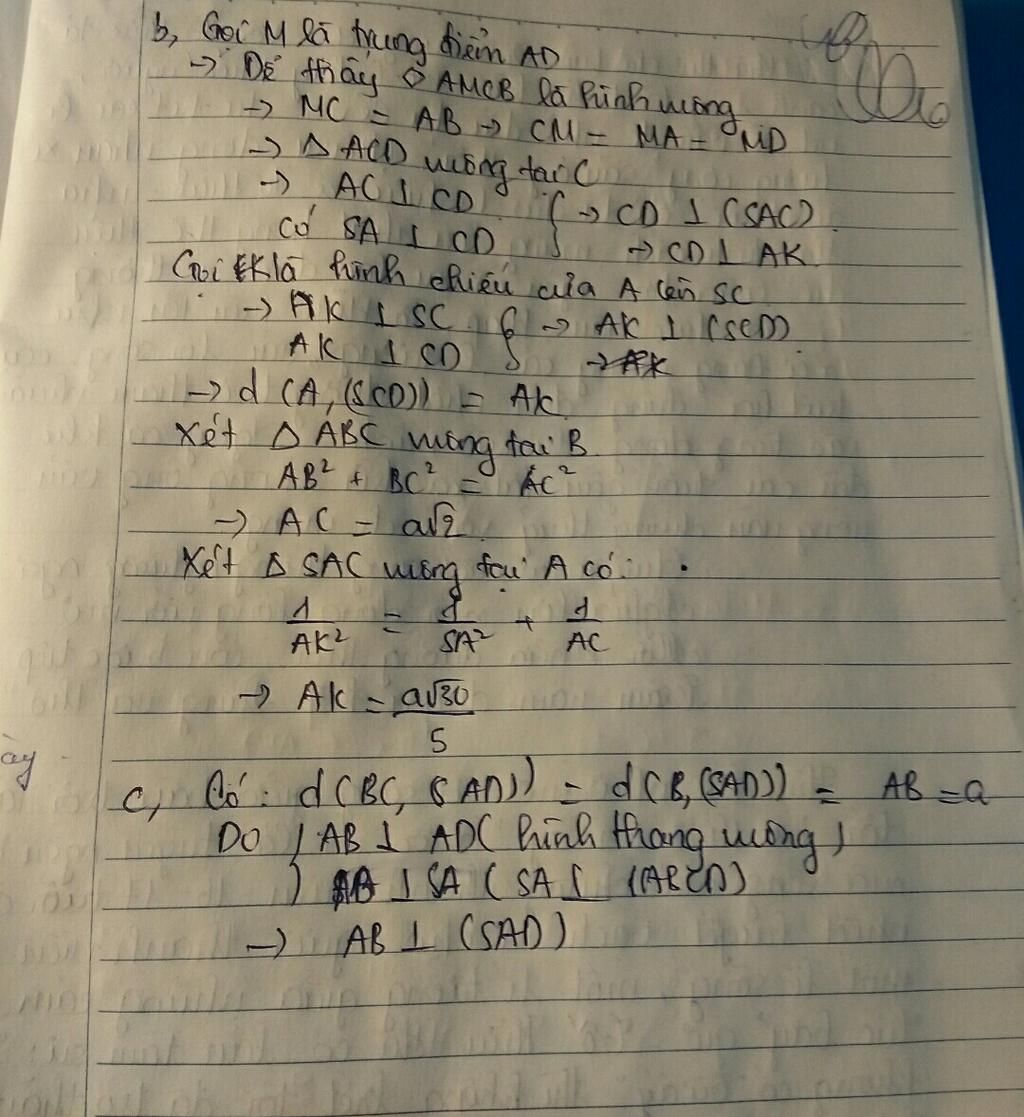 b, Gọi M là trung điểm AD
→ Dễ thấy ◇ AMCB là hình vuông
→ MC = AB → CM = MA = MD
→ Δ ACD vuông tại C
→ AC ⊥ CD } → CD ⊥ (SAC)
Có SA ⊥ CD → CD ⊥ AK
Gọi K là hình chiếu của A lên SC
→ AK ⊥ SC } → AK ⊥ (SCD)
AK ⊥ CD → AK
→ d (A, (SCD)) = AK
Xét Δ ABC vuông tại B
AB² + BC² = AC²
→ AC = a√2
Xét Δ SAC vuông tại A có:
1/AK² = 1/SA² + 1/AC
→ AK = a√30/5
ày
c, Có: d(BC, (SAD)) = d(B, (SAD)) = AB = a
Do { AB ⊥ AD ( hình thang vuông )
AB ⊥ SA ( SA ⊥ (ABCD)
→ AB ⊥ (SAD)